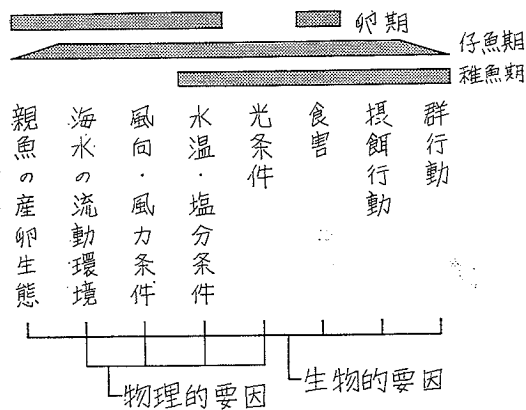 卵期
仔魚期
稚魚期
親魚の産卵生態
海水の流動環境
風向・風力条件
水温・塩分条件
光条件
食害
摂餌行動
群行動
物理的要因
生物的要因